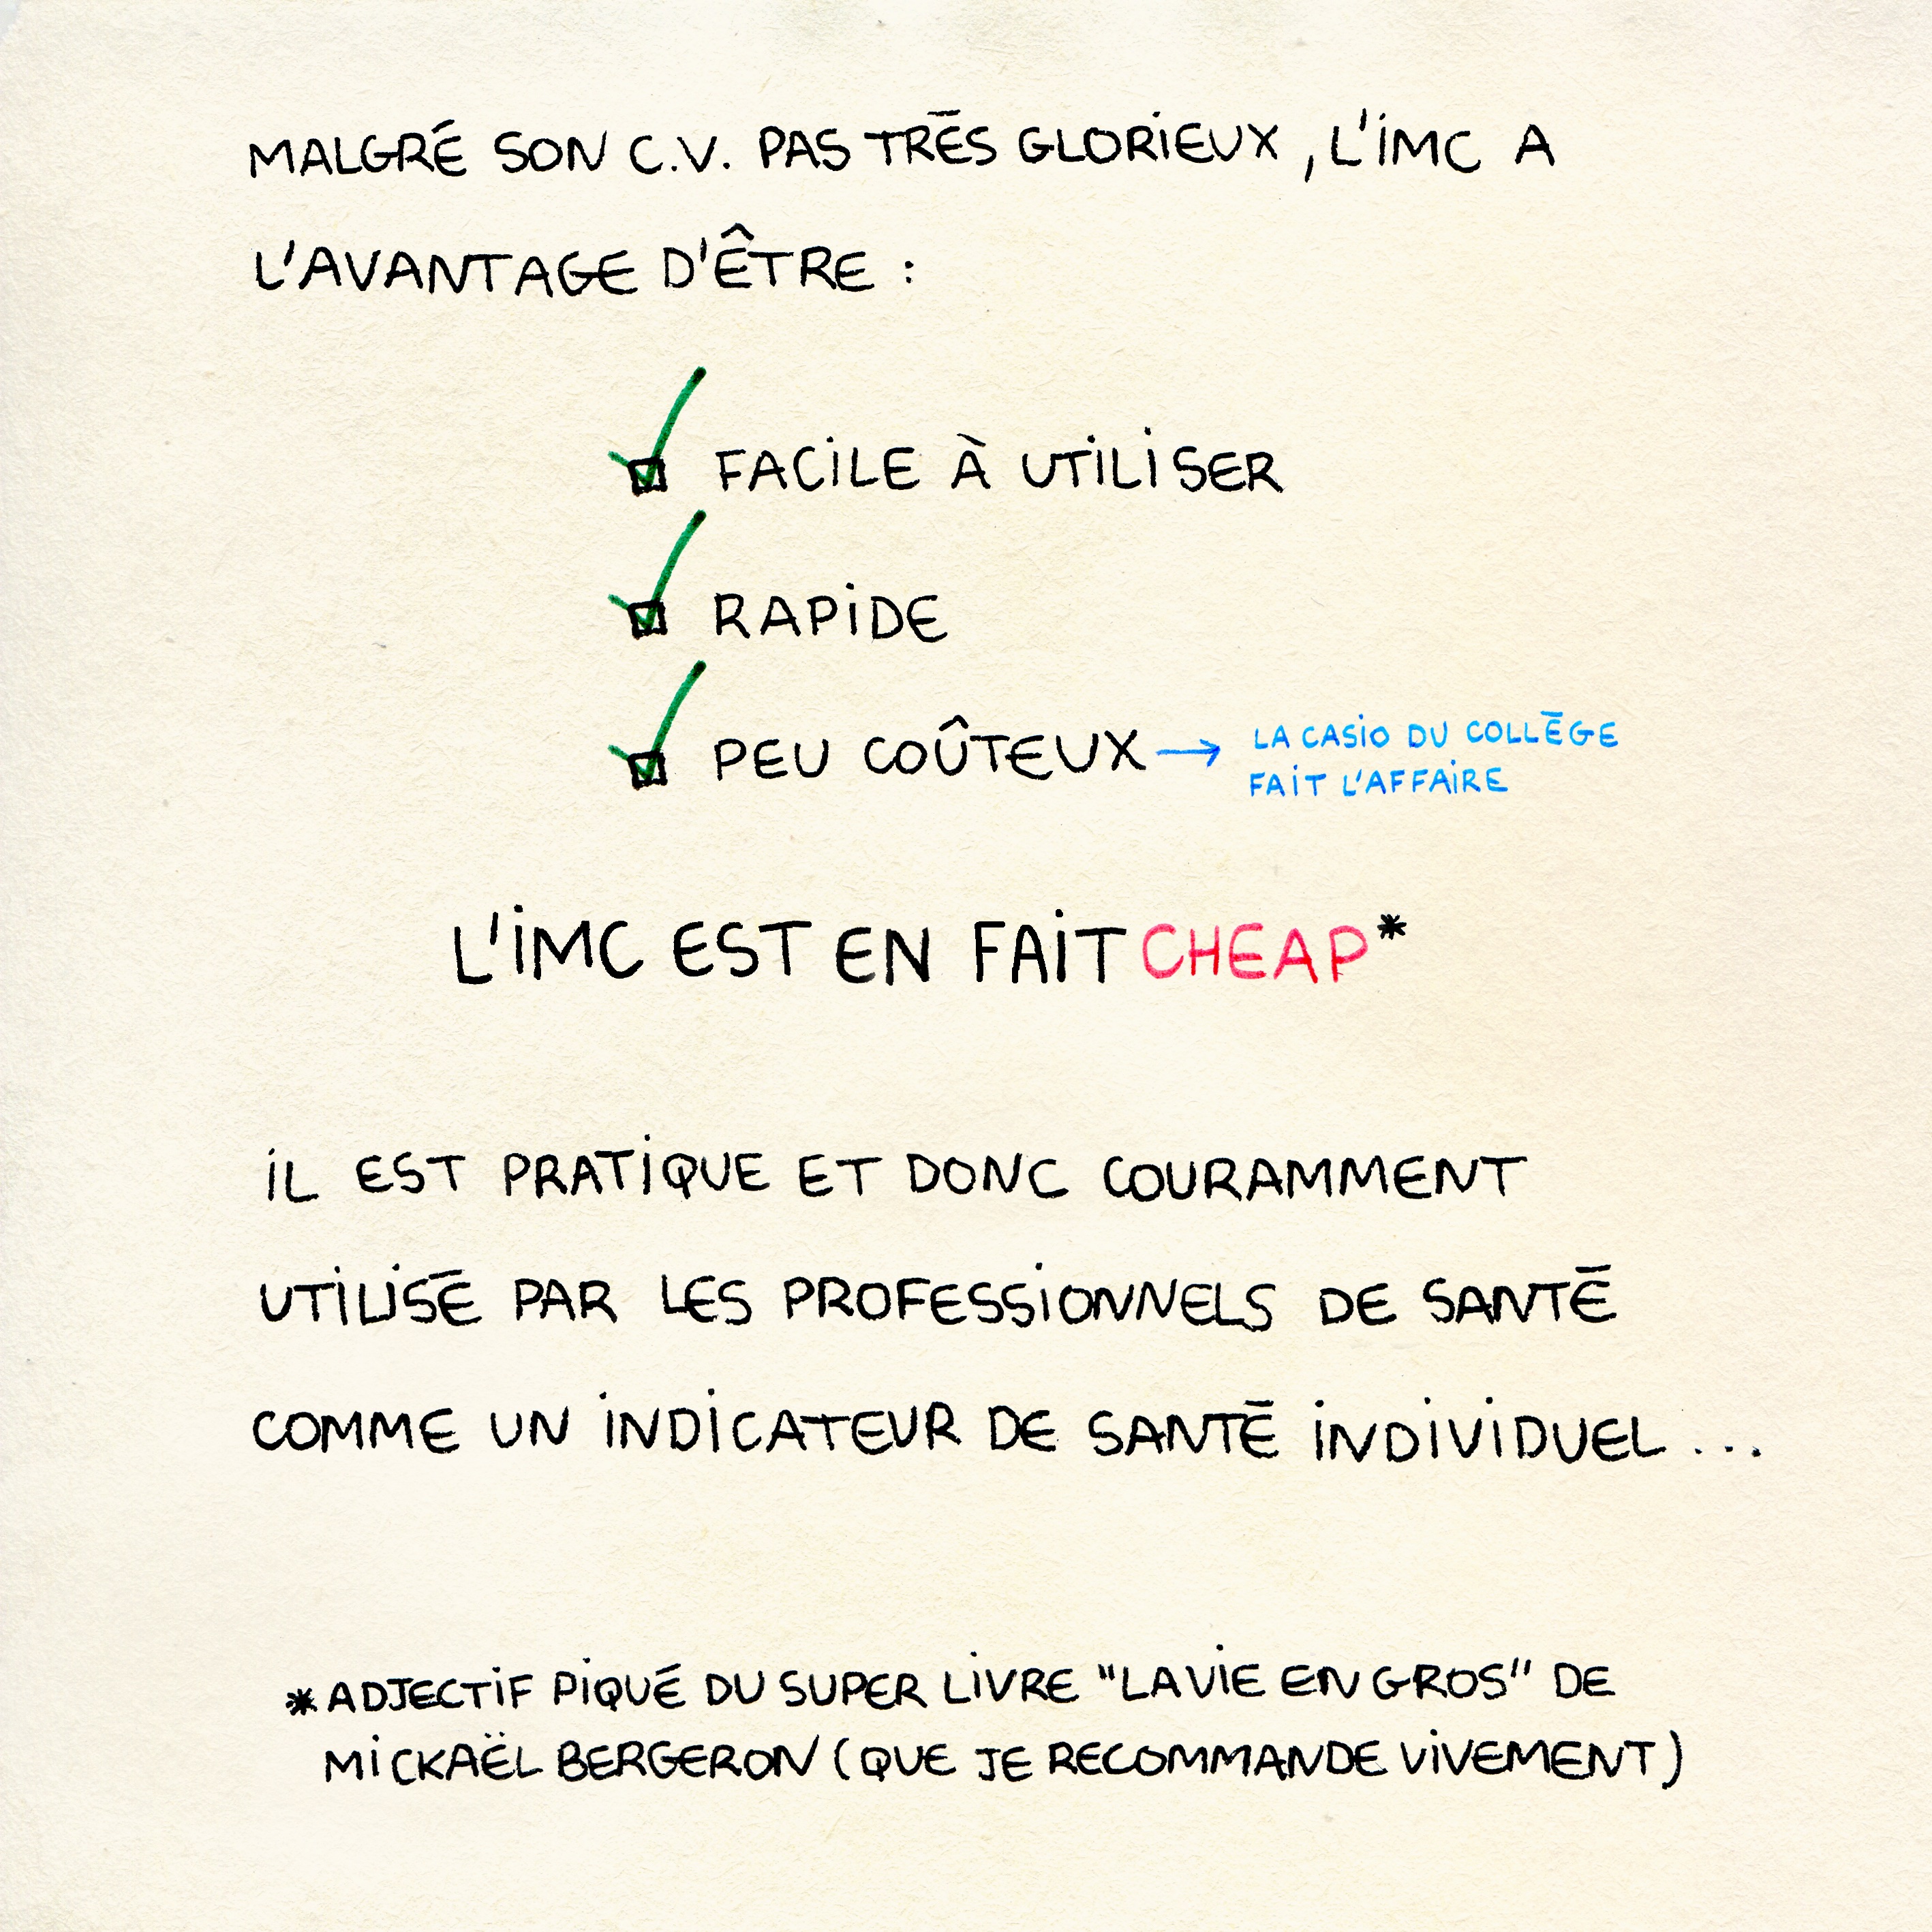 MALGRÉ SON C.V. PAS TRÈS GLORIEUX, L'IMC A
L'AVANTAGE D'ÊTRE :
FACILE À UTILISER
RAPIDE
PEU COÛTEUX → LA CASIO DU COLLÈGE
FAIT L'AFFAIRE
L'IMC EST EN FAIT CHEAP*
IL EST PRATIQUE ET DONC COURAMMENT
UTILISÉ PAR LES PROFESSIONNELS DE SANTÉ
COMME UN INDICATEUR DE SANTÉ INDIVIDUEL ...
*ADJECTIF PIQUÉ DU SUPER LIVRE "LA VIE EN GROS" DE
MICKAËL BERGERON (QUE JE RECOMMANDE VIVEMENT)